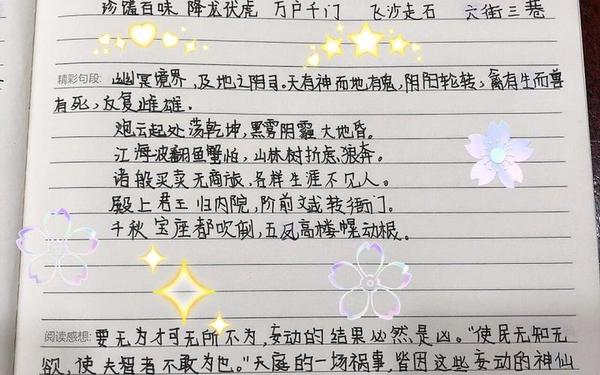 珍馐百味 降龙伏虎 万户千门 飞沙走石 六街三巷
精彩句段: 幽冥境界,及地之阴司。天有神而地有鬼,阴阳轮转,禽有生而兽
有死,反复雌雄。
炮云起处荡乾坤,黑雾阴霾大地昏。
江海波翻鱼蟹怕,山林树折虎狼奔。
诸般买卖无商旅,各样生涯不见人。
殿上君王归内院,阶前文武转衙门。
千秋宝座都吹倒,五凤高楼幌动根。
阅读感想: 要无为才可无所不为,妄动的结果必然是凶。“使民无知无
欲,使夫智者不敢为也。”天庭的一场祸事,皆因这些妄动的神仙